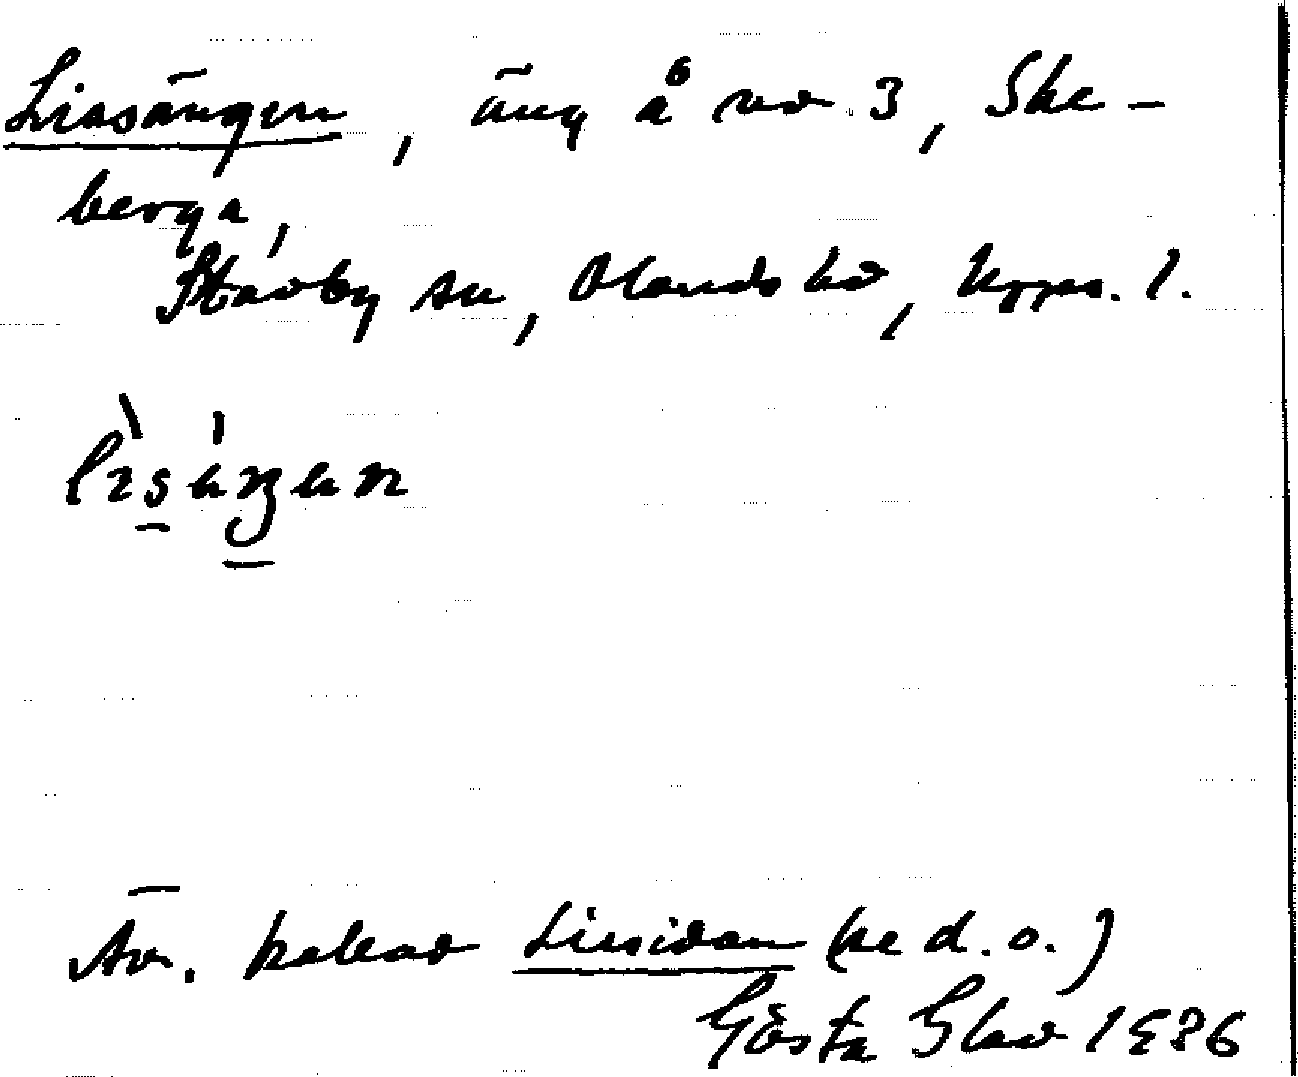 Liasängen, äng å nr 3, Ske-
berga,
Stavby sn, Olands hd, Upps. l.
Äv. kallad Liesidan (se d. o.)
Gösta Glad 1936